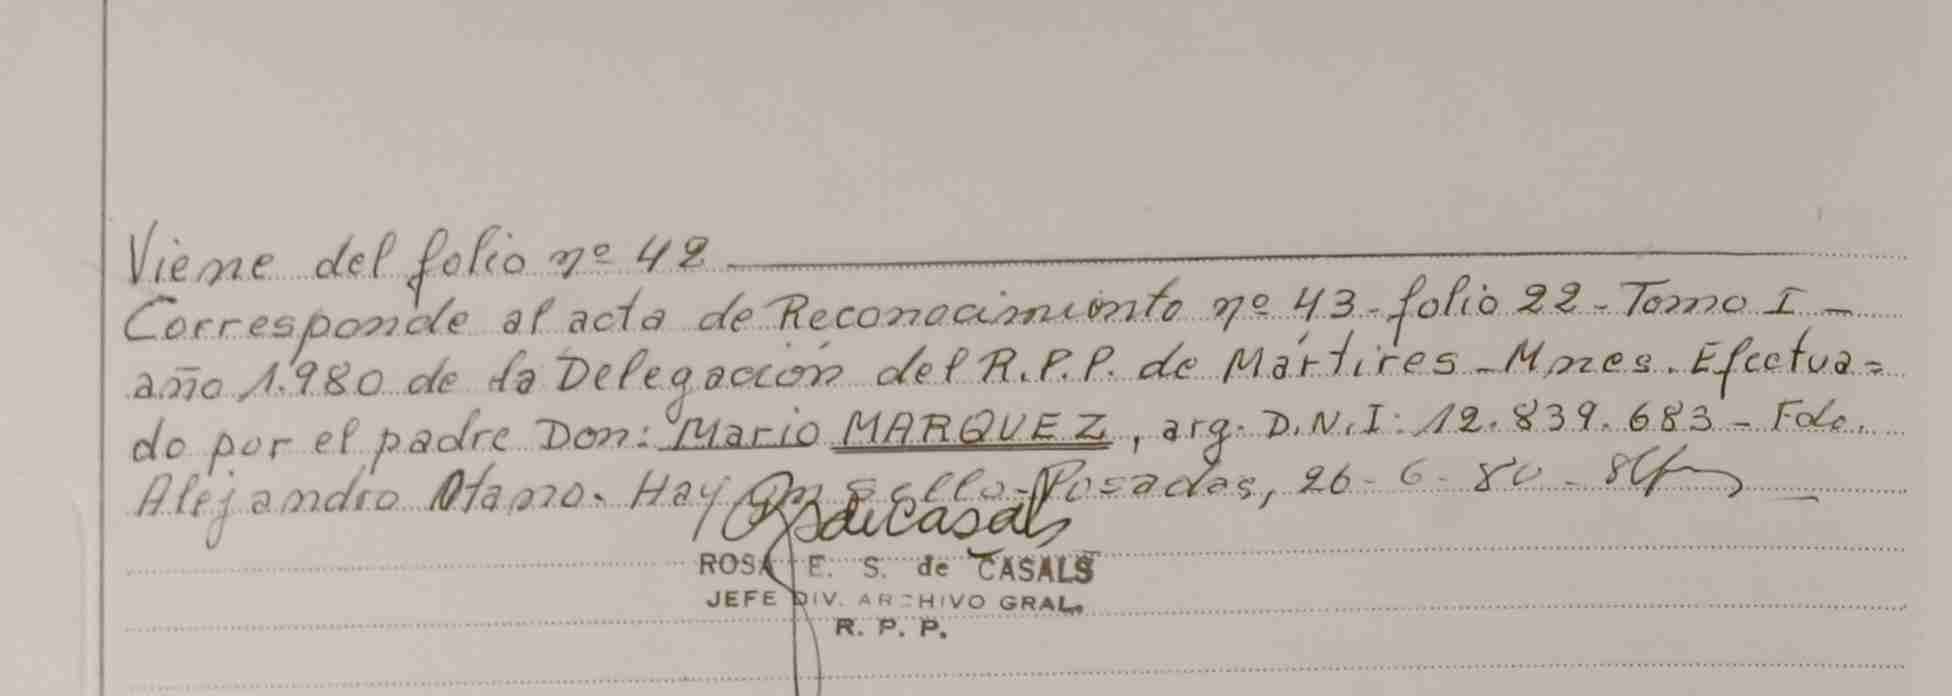 Viene del folio nº 42
Corresponde al acta de Reconocimiento nº 43 - folio 22 - Tomo I -
año 1.980 de la Delegación del R.P.P. de Mártires - Mnes. Efectua=
do por el padre Don: Mario MARQUEZ, arg. D.N.I: 12.839.683 - Fdo.
Alejandro Otano. Hay un sello - Posadas, 26 - 6 - 80 -
ROSA E. S. de CASALS
JEFE DIV. ARCHIVO GRAL.
R. P. P.